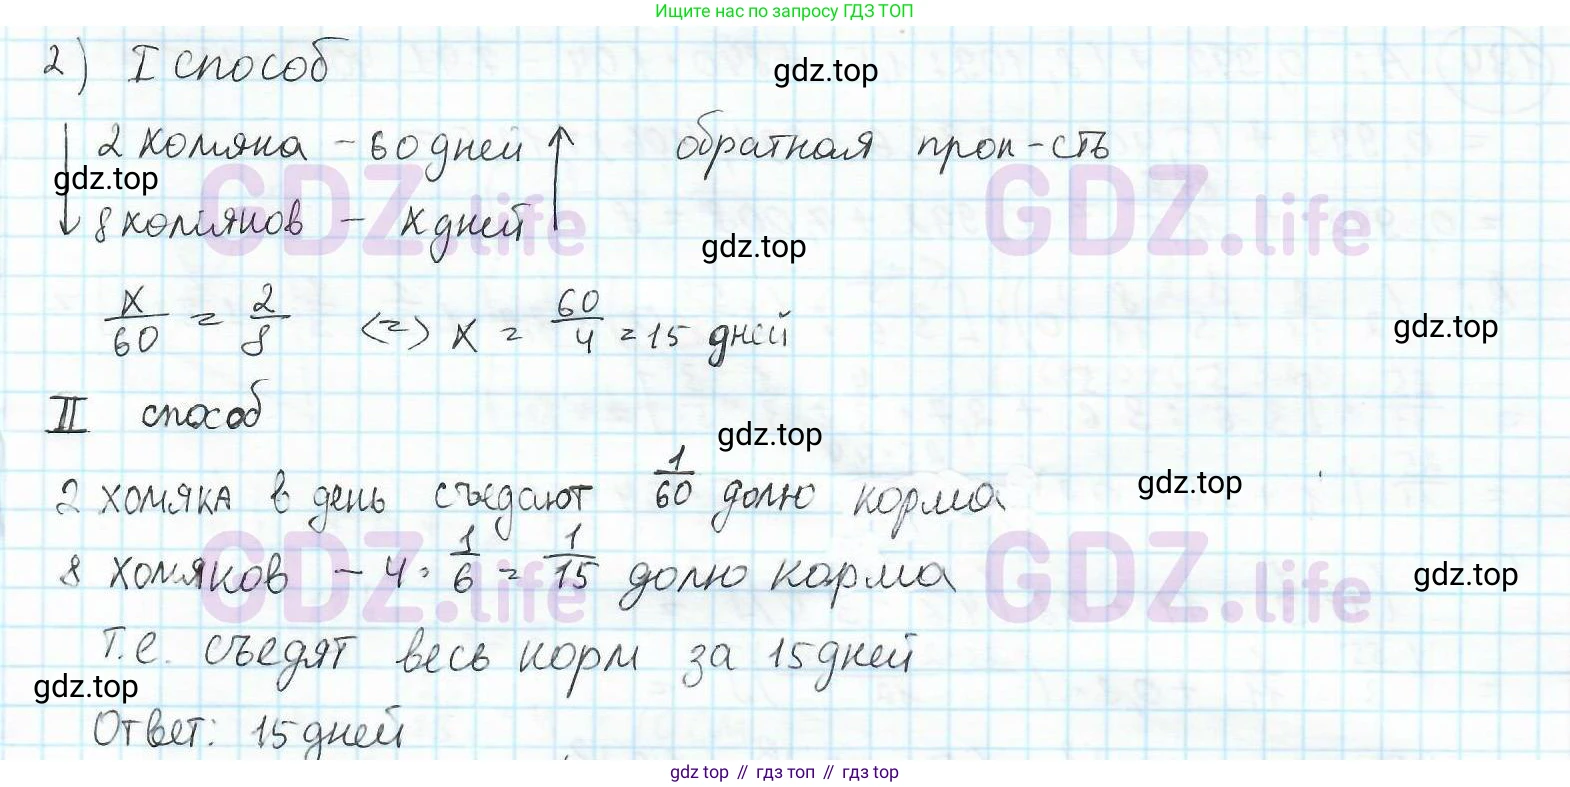 Ищите нас по запросу ГДЗ ТОП
2) I способ
gdz.top
2 хомяка - 60 дней обратная проп-сть
gdz.top
GDZ.life GDZ.life
8 хомяков - x дней
gdz.top
x/60 = 2/8 <=> x = 60/4 = 15 дней
gdz.top
II способ
gdz.top
2 хомяка в день съедают 1/60 долю корма
gdz.top
8 хомяков - 4 · 1/6 = 1/15 долю корма
gdz.top
GDZ.life GDZ.life
т.е. съедят весь корм за 15 дней
gdz.top
Ответ: 15 дней
gdz top // гдз топ // гдз top